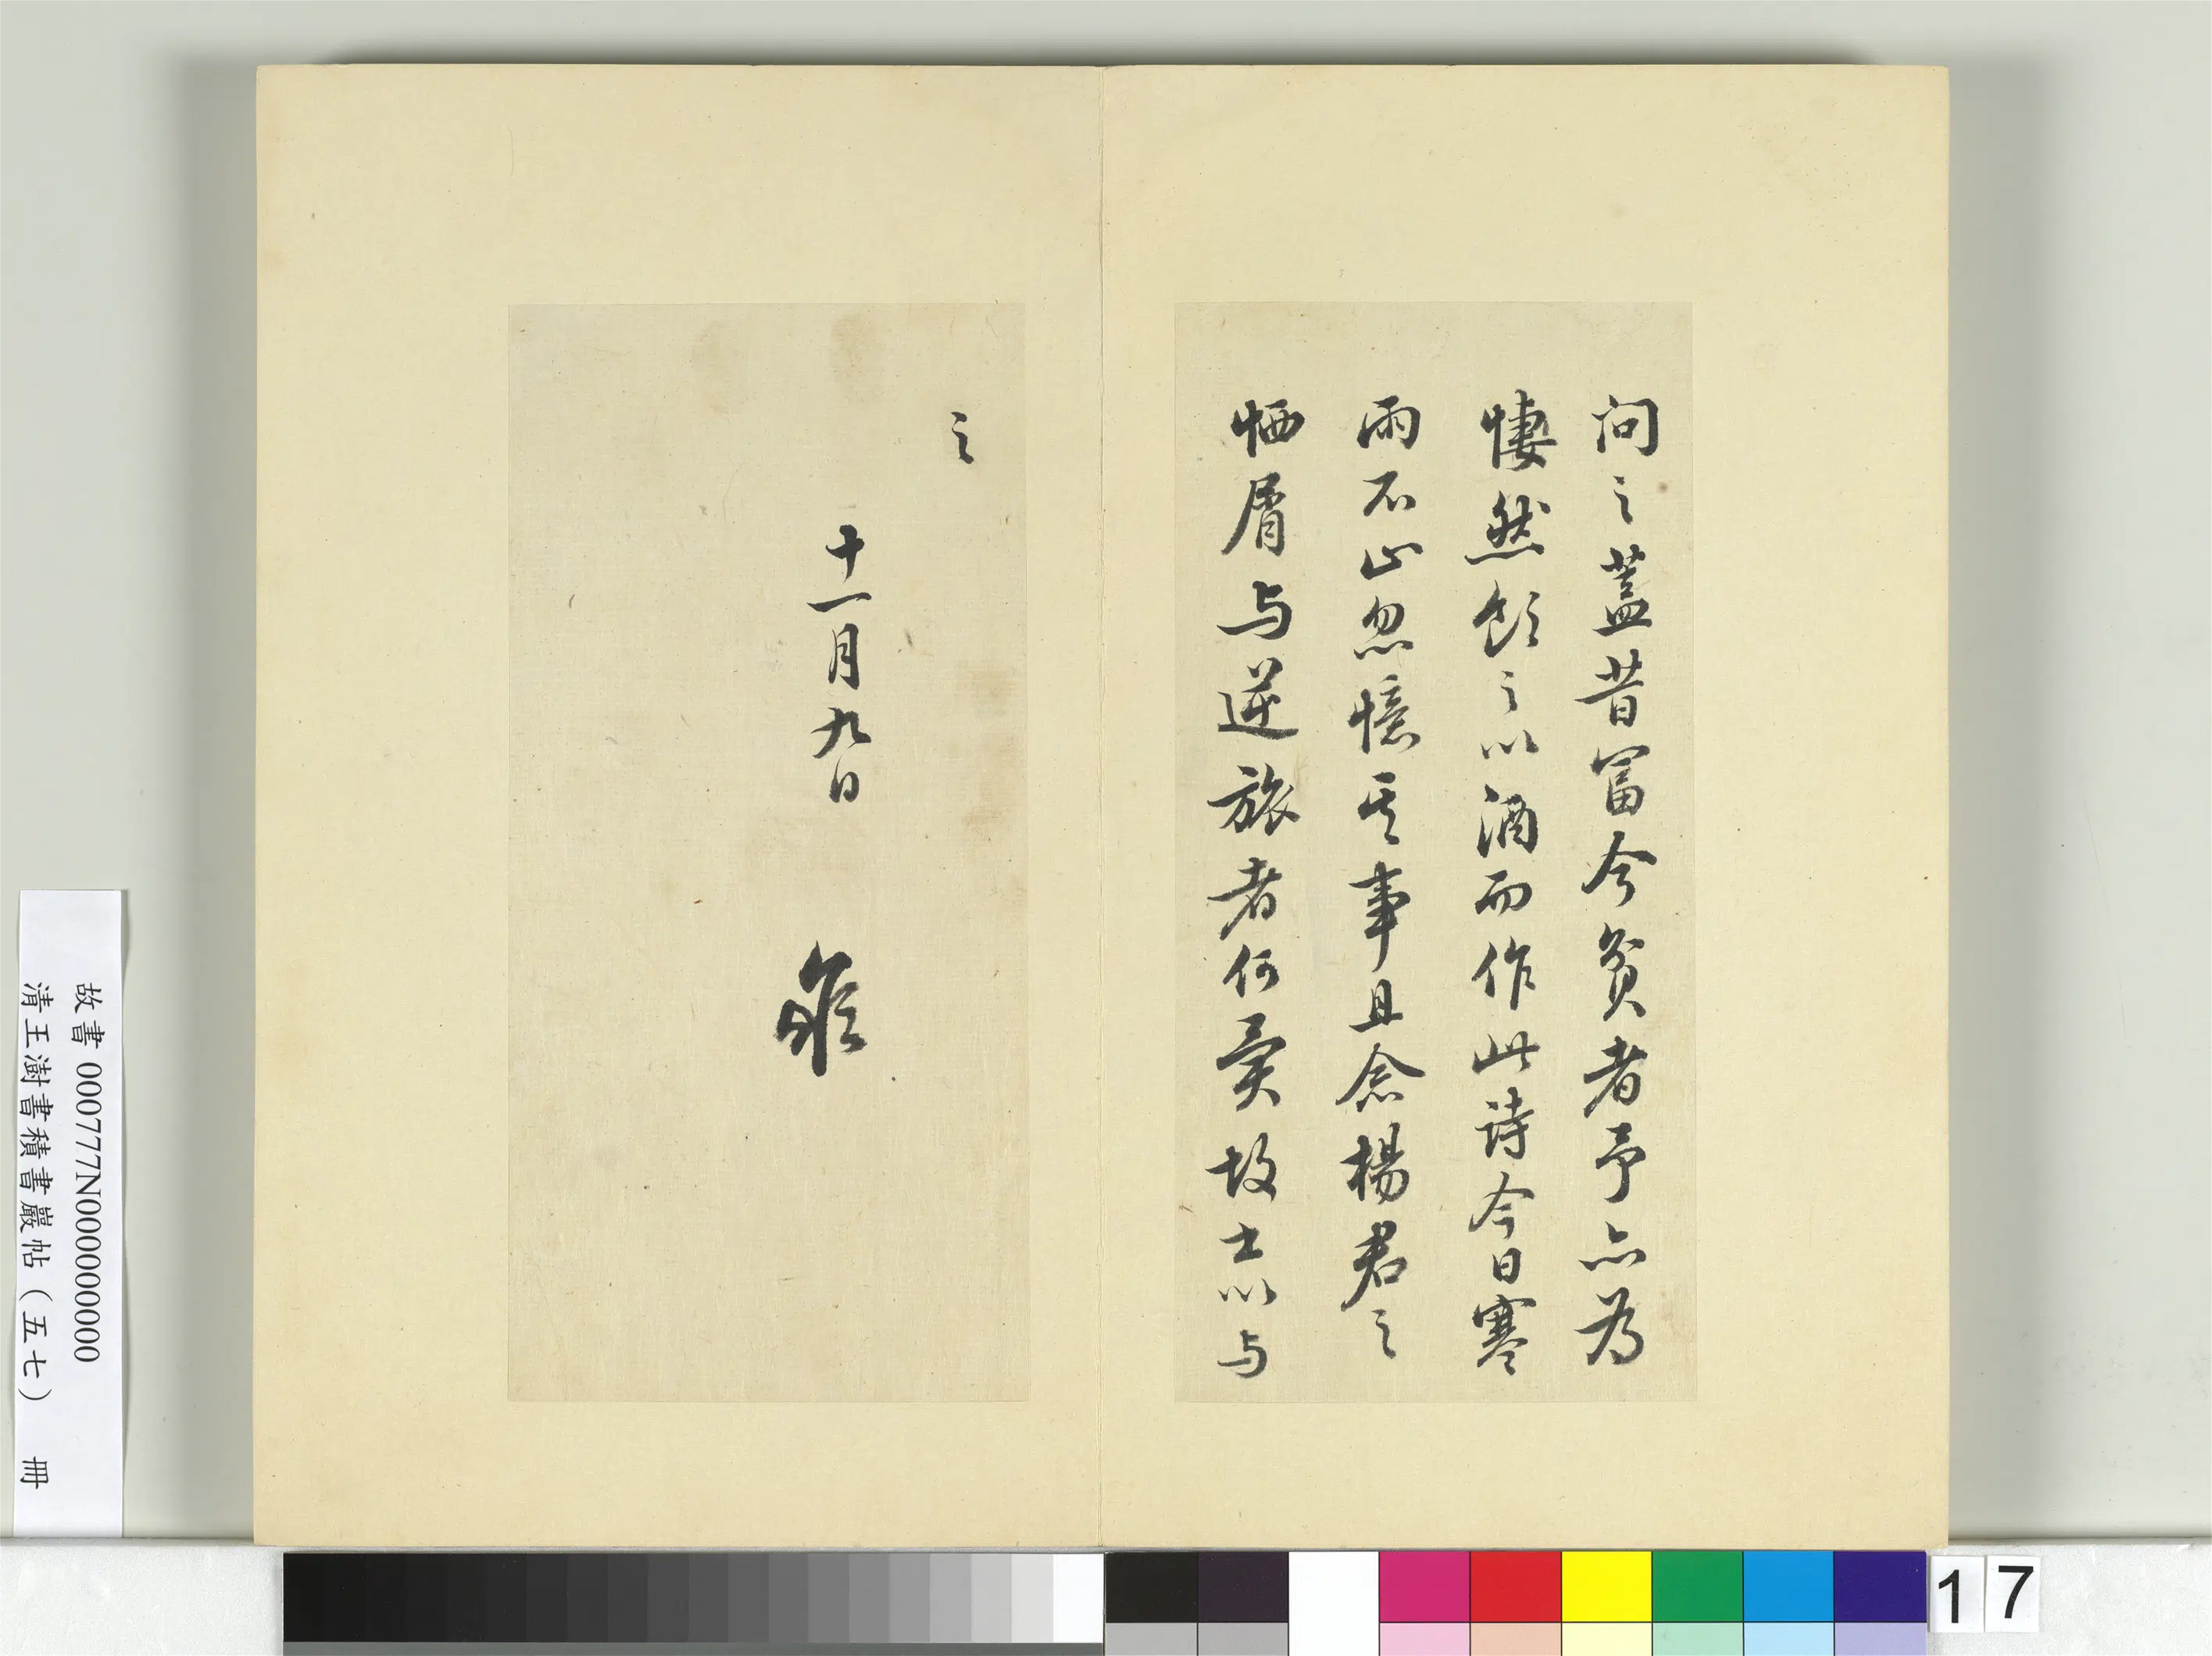 问之蓋昔富今貧者予亦為
悽然飲之以酒而作此詩今日寒
雨不止忽憶其事且念楊君之
栖屑与逆旅者何異故士以与
之
十一月九日
故書 000777N000000000
清王澍書積書巖帖（五七） 冊
17